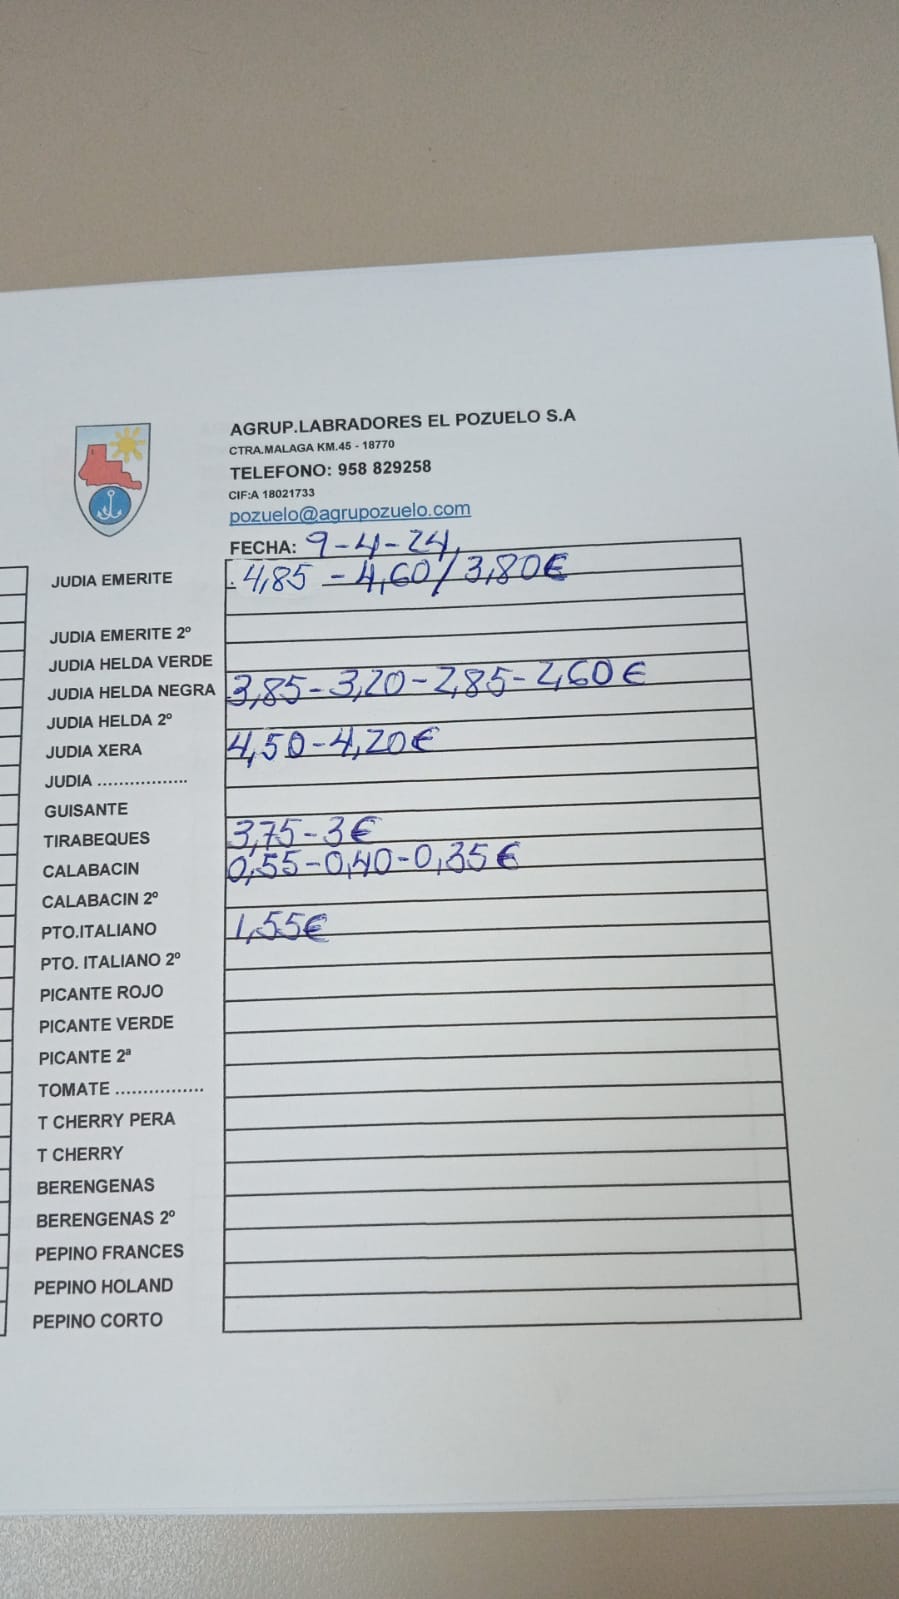 AGRUP.LABRADORES EL POZUELO S.A
CTRA.MALAGA KM.45 - 18770
TELEFONO: 958 829258
CIF:A 18021733
pozuelo@agrupozuelo.com
FECHA: 9-4-24,
JUDIA EMERITE . 4,85 - 4,60 / 3,80€
JUDIA EMERITE 2º
JUDIA HELDA VERDE
JUDIA HELDA NEGRA 3,85-3,20-2,85-2,60€
JUDIA HELDA 2º
JUDIA XERA 4,50-4,20€
JUDIA ................
GUISANTE
TIRABEQUES 3,75-3€
CALABACIN 0,55-0,40-0,35€
CALABACIN 2º
PTO.ITALIANO 1,55€
PTO. ITALIANO 2º
PICANTE ROJO
PICANTE VERDE
PICANTE 2ª
TOMATE ................
T CHERRY PERA
T CHERRY
BERENGENAS
BERENGENAS 2º
PEPINO FRANCES
PEPINO HOLAND
PEPINO CORTO